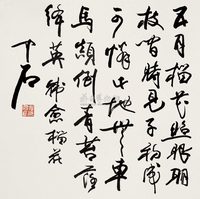 五月榴花照眼明
枝間時見子初成
可憐此地無車
馬顛倒青苔落
絳英韓愈榴花
中石